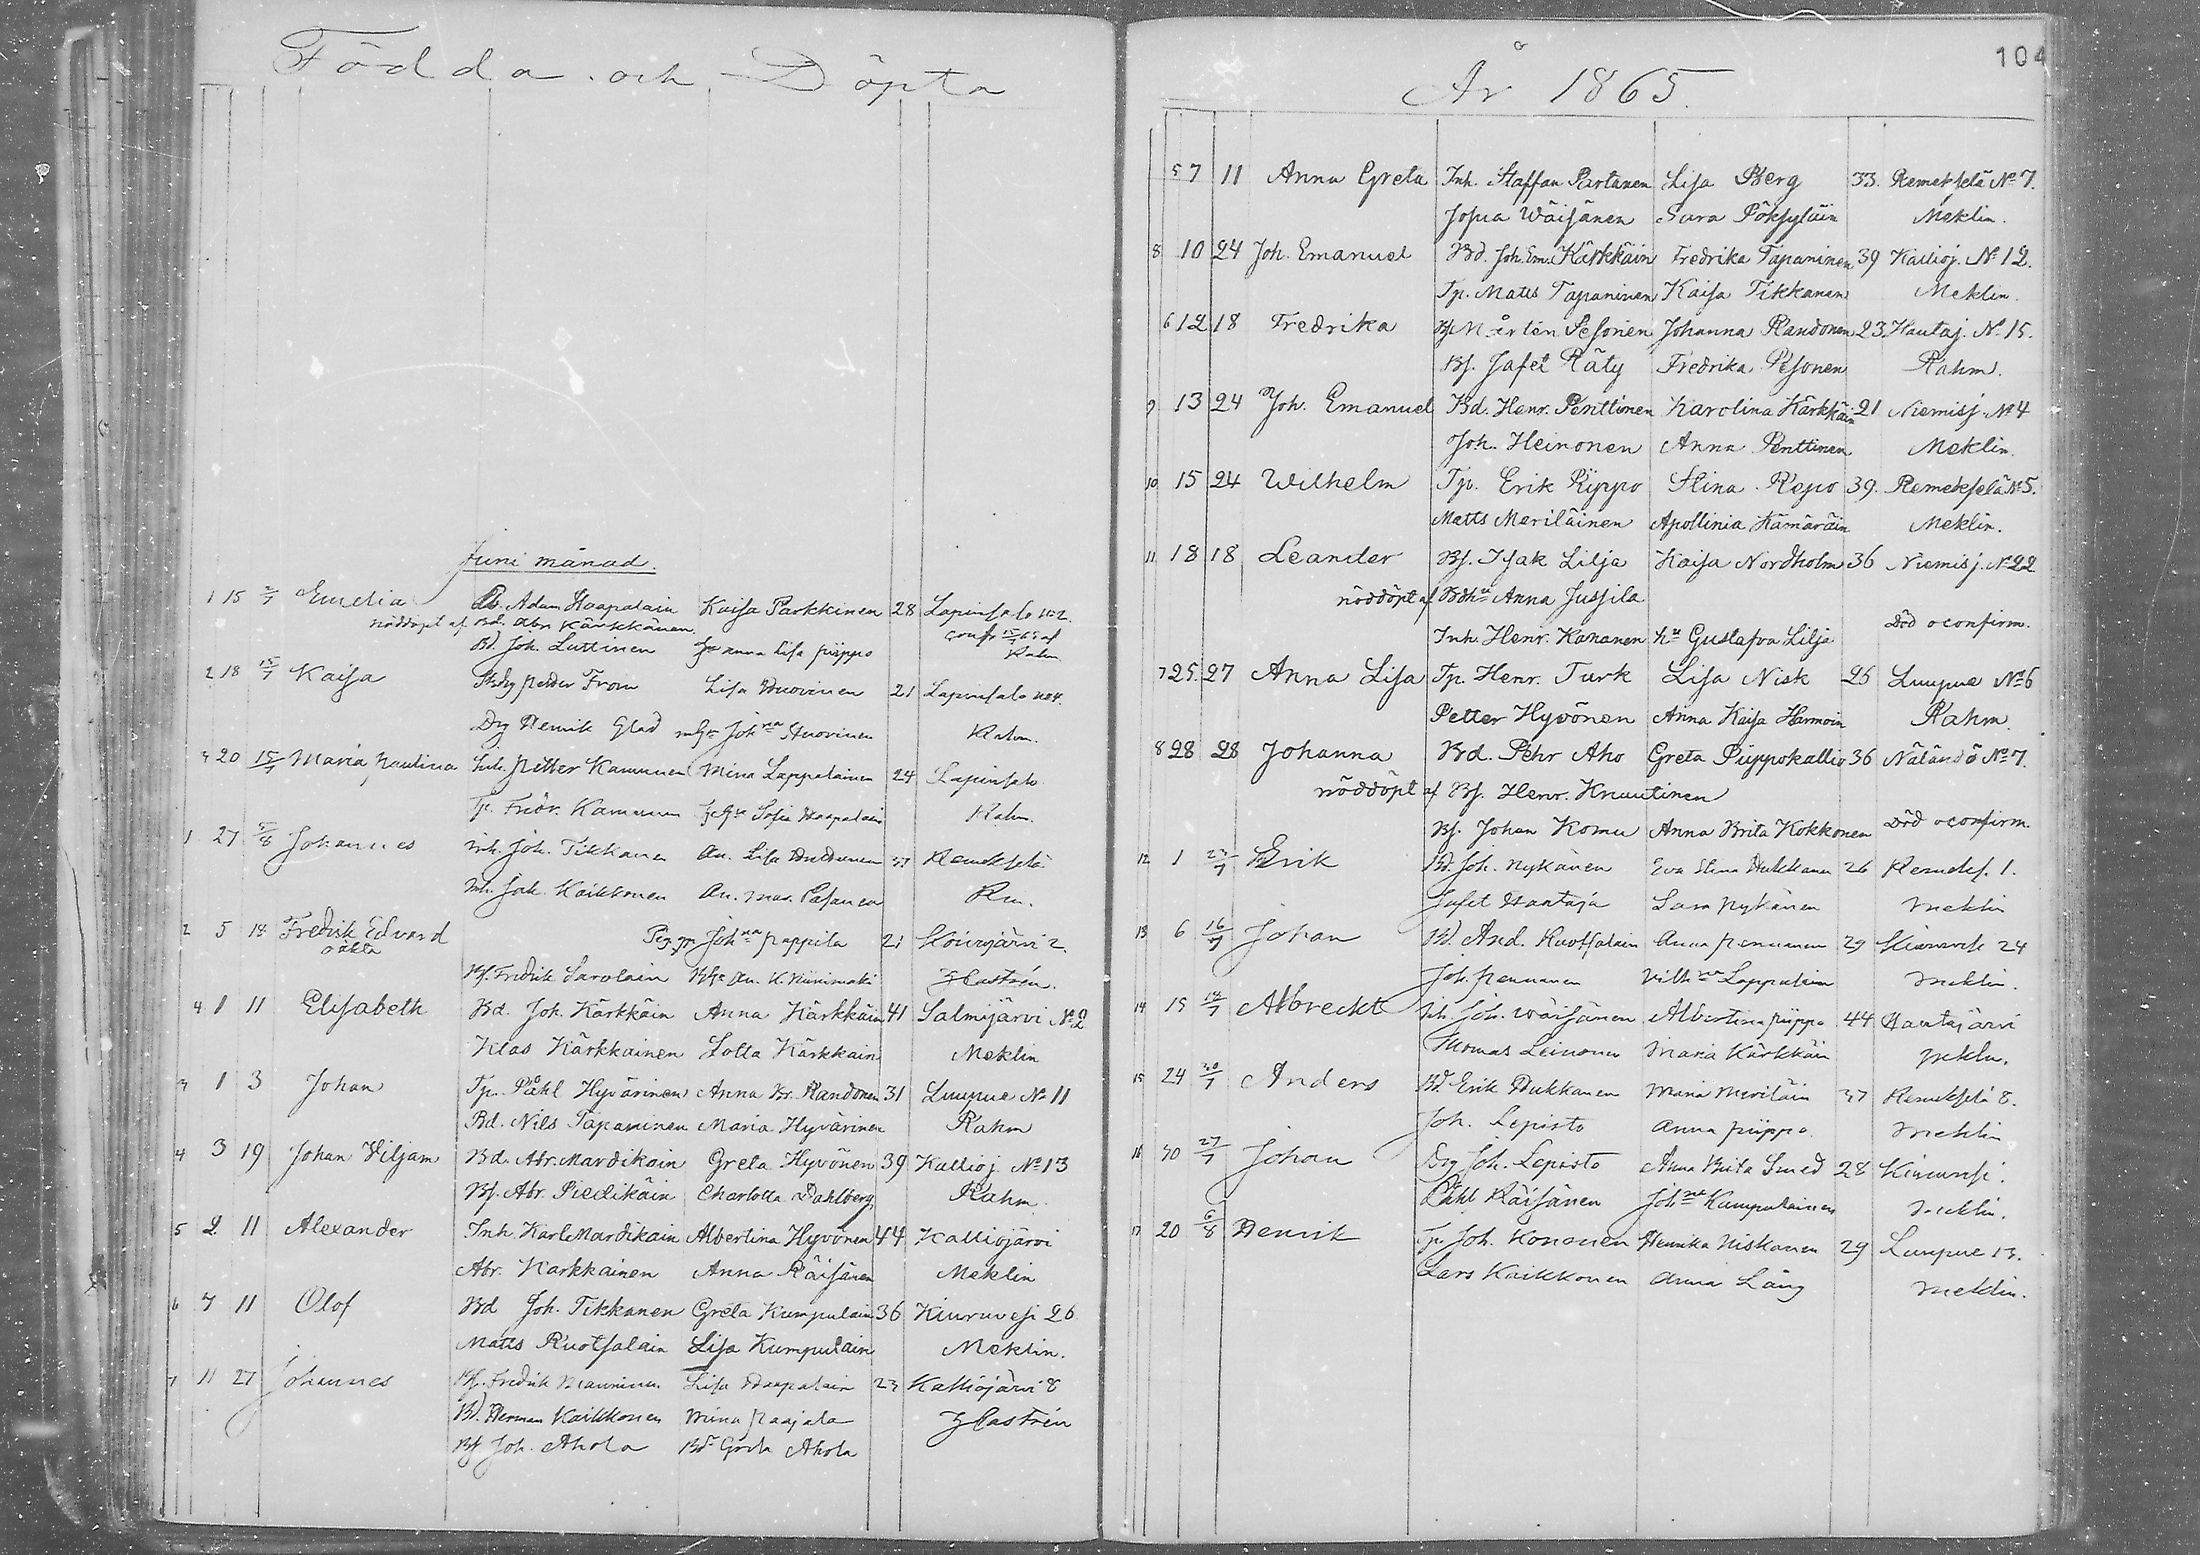 Födda och Döpta
Juni månad.
1 15 2/7 Emelia Bd. Adam Haapalain Kaisa Parkkinen 28 Lapinsalo No 2.
nöddöpt af Bd. Abr. Kärkkäinen conf 15/7 65 af
Bd. Joh. Luttinen anna Lisa piippo Rahm
2 18 15/7 Kaisa petter From Lisa Huovinen 21 Lapinsalo No 4.
Drg Henrik Glad Johna Huovinen Rahm.
3 20 15/7 Maria paulina Inh. petter Kamunen Mina Lappalainen 24 Lapinsalo
Tp. Fridr. Kamunen Sofia Haapalain Rahm.
1 27 5/8 Johannes inh. Joh. Tikkanen An. Lisa 37 Remekselä
inh. Joh. Kaikkonen An. Mar. Pesanen Rm.
2 5 18 Fredrik Edvard Johna pappila 21 Koivujärvi 2
oäkta
Bs. Fredrik Savolain An. K. Niinimäki Castrén.
4 1 11 Elisabeth Bd. Joh. Kärkkäin Anna Kärkkäin 41 Salmijärvi No 2
Klas Kärkkainen Lotta Kärkkain Meklin
3 1 3 Johan Tp. Påhl Hyvärinen Anna Br. Randonen 31 Luupue No 11
Bd. Nils Tapaninen Maria Hyvärinen Rahm
4 3 19 Johan Viljam Bd. Abr. Mardikain Greta Hyvönen 39 Kallioj. No 13
Bs. Abr. Piedikäin Charlotta Dahlberg Rahm.
5 2 11 Alexander Inh. Karl Mardikain Albertina Hyvönen 44 Kalliojärvi
Abr. Karkkainen Anna Räisänen Meklin
6 7 11 Olof Bd Joh. Tikkanen Greta Kumpulain 36 Kiuruvesi 26
Matts Ruotsalain Lisa Kumpulain Meklin.
7 11 27 Johannes Bs. Fredrik Manninen Lisa Haapalain 23 Kalliojärvi 8
Bd. Herman Kaikkonen Mina paajala Castrén
Bs Joh. Ahola Greta Ahola
År 1865.
104
5 7 11 Anna Greta Inh. Staffan Partanen Lisa Berg 33. Remekselä No 7.
Josua Wäisänen Sara Pöksyläin Meklin.
8 10 24 Joh. Emanuel Bd. Joh. Em. Kärkkäin Fredrika Tapaninen 39 Kallioj. No 12.
Tp. Matts Tapaninen Kaisa Tikkanen Meklin.
6 12 18 Fredrika Bs. Mårten Pesonen Johanna Randonen 23. Hautaj. No 15.
Bs. Jafet Räty Fredrika Pesonen Rahm.
9 13 24 Joh. Emanuel Bd. Henr. Penttinen Karolina Kärkkäin 21 Niemisj. No 4
Joh. Heinonen Anna Penttinen Meklin.
10 15 24 Wilhelm Tp. Erik Piippo Stina Repo 39. Remekselä No 5.
Matts Meriläinen Apollinia Kämäräin Meklin.
11 18 18 Leander Bs. Isak Lilja Kaisa Nordholm 36 Niemisj. No 22
nöddöpt af Anna Jussila
Död o confirm.
Inh. Henr. Kananen hu Gustafva Lilja
7 25. 27 Anna Lisa Tp. Henr. Turk Lisa Nisk 25 Luupue No 6
Petter Hyvönen Anna Kaisa Harmoin Rahm
8 28 28 Johanna Bd. Pehr Aho Greta Piippokallio 36 Näländö No 7.
nöddöpt af Bs. Henr. Knuutinen
Bs. Johan Komu Anna Brita Kokkonen Död o confirm.
12 1 23/7 Erik Bd. Joh. Nykänen Eva Stina Hukkanen 26 Remeks. 1.
Jafet Haataja Sara Nykänen Meklin
13 6 16/7 Johan Bd. And. Ruotsalain Anna pennanen 29 Kiuruvesi 24
Joh. pennanen Vilhna Lappalain Meklin.
14 15 18/7 Albreckt inh. Joh. Wäisänen Albertina piippo 44 Hautajärvi
Thomas Leinonen Maria Kärkkäin Meklin.
15 24 30/7 Anders Bd. Erik Hukkanen Maria Meriläin 37 Remekselä 8.
Joh. Lepisto Anna piippo. Meklin
16 30 27/7 Johan Drg Joh. Lepisto Anna Brita Smed 28 Kiuruvesi.
Påhl Räisänen Johna Kumpulainen Meklin.
17 20 6/8 Henrik Tp Joh. Kononen Henrika Niskanen 29 Luupue 13.
Lars Kaikkonen Anna Lång Meklin.